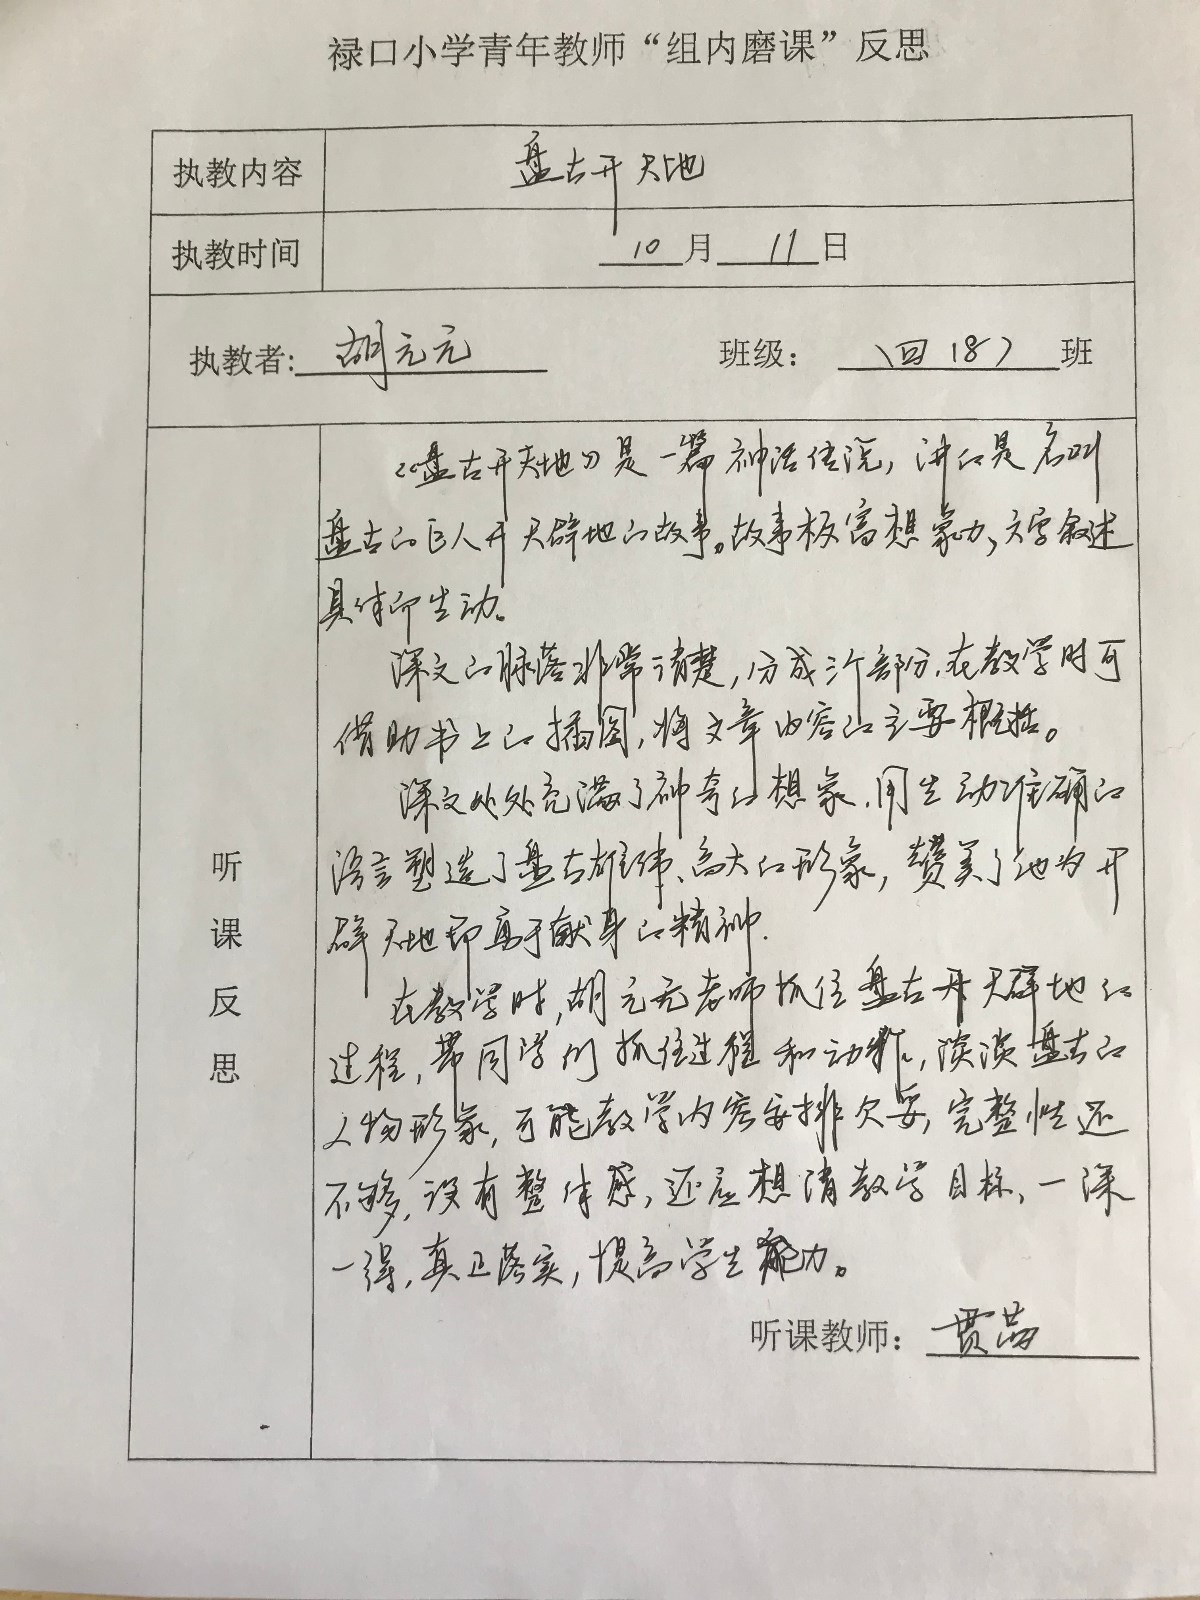 禄口小学青年教师“组内磨课”反思
执教内容 盘古开天地
执教时间 10月11日
执教者: 胡元元 班级: （四18）班
《盘古开天地》是一篇神话传说，讲的是名叫
盘古的巨人开天辟地的故事。故事极富想象力，文字叙述
具体即生动。
课文的脉落非常清楚，分成三个部分.在教学时可
借助书上的插图，将文章内容的主要概括。
课文处处充满了神奇的想象.用生动准确的
语言塑造了盘古雄伟、高大的形象，赞美了他为开
辟天地即勇于献身的精神.
在教学时，胡元元老师抓住盘古开天辟地的
过程，带同学们抓住过程和动作，谈谈盘古的
人物形象，可能教学内容安排欠妥，完整性还
不够，没有整体感，还应想清教学目标，一课
一得，真正落实，提高学生能力。
听课反思
听课教师: 贾茜